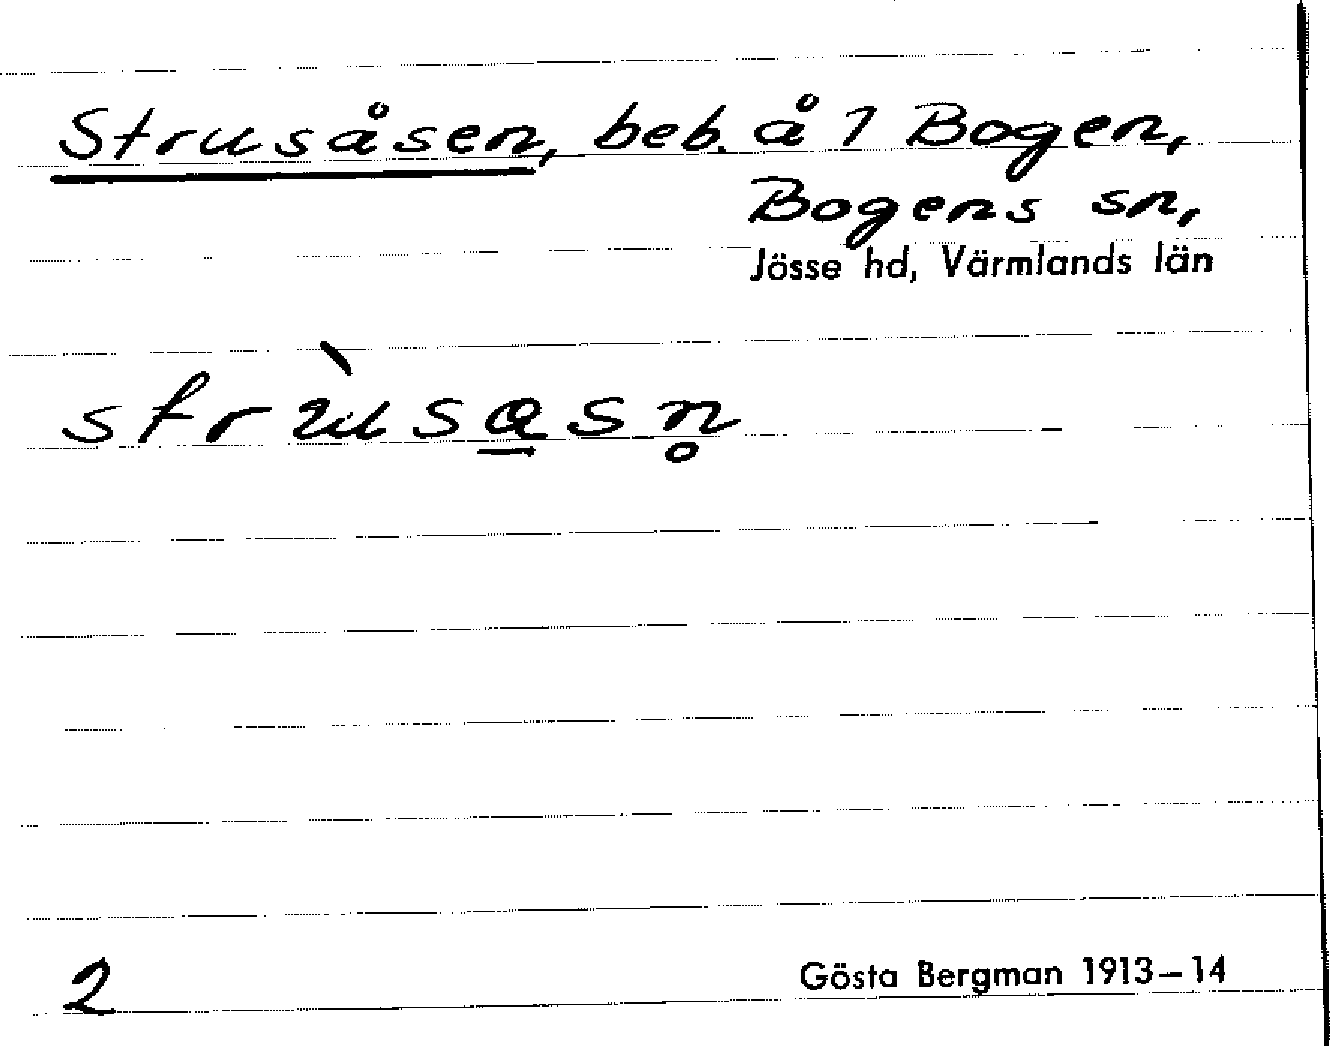 Strusåsen, beb. å 1 Bogen,
Bogens sn,
Jösse hd, Värmlands län
strùsa̠sn̥
2
Gösta Bergman 1913–14